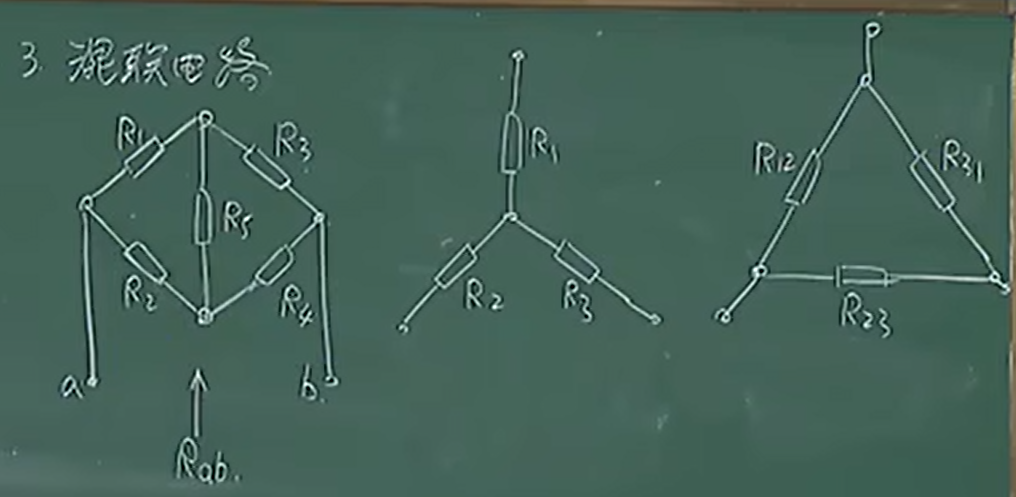 3. 混联电路
R1
R3
R5
R2
R4
a
b.
Rab.
R1
R2
R3
R12
R31
R23